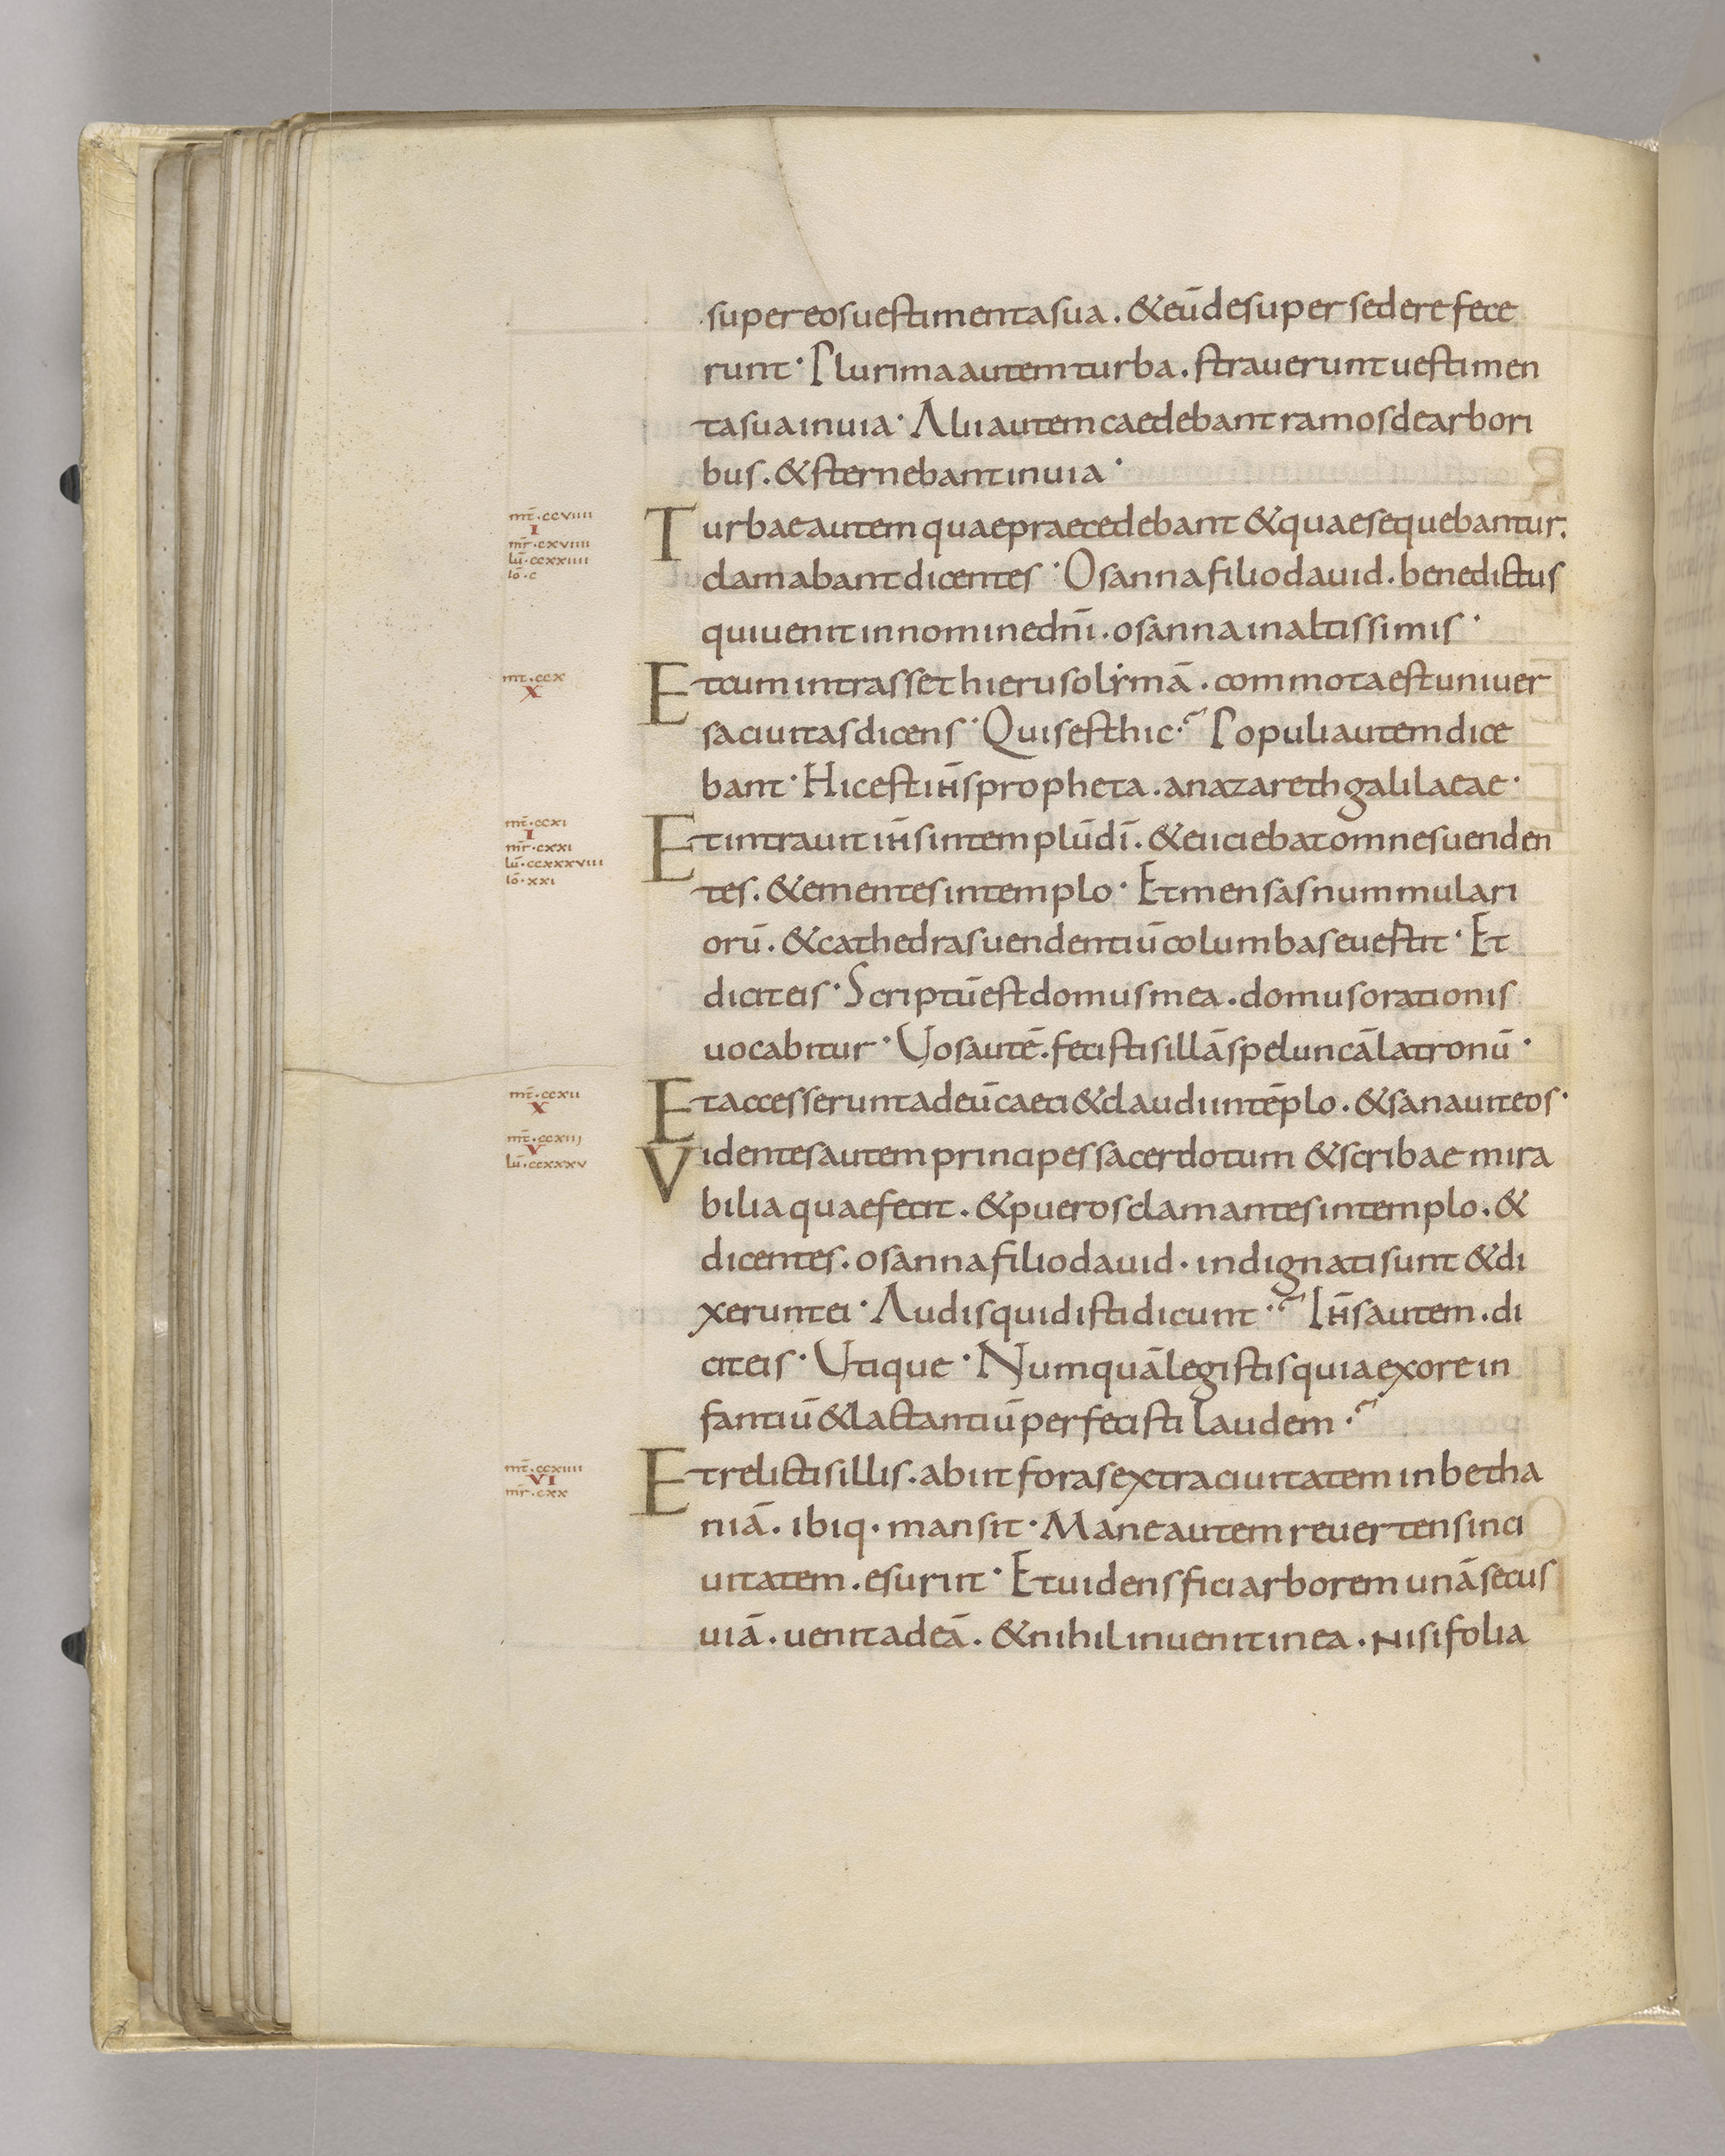 super eos uestimenta sua . & eū desuper sedere fece
runt · Plurima autem turba . strauerunt uestimen
ta sua in uia · Alii autem caedebant ramos de arbori
bus . & sternebant in uia ·
mt̄ · ccviiii
I
mr̄ · cxviiii
lū · ccxxiiii
iō · c
Turbae autem quae praecedebant & quae sequebantur .
clamabant dicentes · Osanna filio dauid . benedictus
qui uenit in nomine dn̄i . osanna in altissimis ·
mt̄ · ccx
X
Et cum intrasset hierusolymā . commota est uniuer
sa ciuitas dicens · Quis est hic ·~ Populi autem dice
bant · Hic est ih̄s propheta . a nazareth galilaeae ·
mt̄ · ccxi
I
mr̄ · cxxi
lū · ccxxxviii
iō · xxi
Et intrauit ih̄s in templū dī . & eiciebat omnes uenden
tes . & ementes in templo · Et mensas nummulari
orū . & cathedras uendentiū columbas euestit · Et
dicit eis · Scriptū est domus mea . domus orationis
uocabitur · Vos autē . fecistis illā speluncā latronū ·
mt̄ · ccxii
X
Et accesserunt ad eū caeci & claudi in tēplo . & sanauit eos ·
mt̄ · ccxiij
V
lū · ccxxxv
Videntes autem principes sacerdotum & scribae mira
bilia quae fecit . & pueros clamantes in templo . &
dicentes . osanna filio dauid . indignati sunt & di
xerunt ei · Audis quid isti dicunt ·~ Ih̄s autem . di
cit eis · Vtique · Numquā legistis quia ex ore in
fantiū & lactantiū perfecisti laudem ·~
mt̄ · ccxiiii
VI
mr̄ · cxx
Et relictis illis . abiit foras extra ciuitatem in betha
niā . ibiq · mansit · Mane autem reuertens in ci
uitatem . esuriit · Et uidens fici arborem unā secus
uiā . uenit ad eā . & nihil inuenit in ea . nisi folia